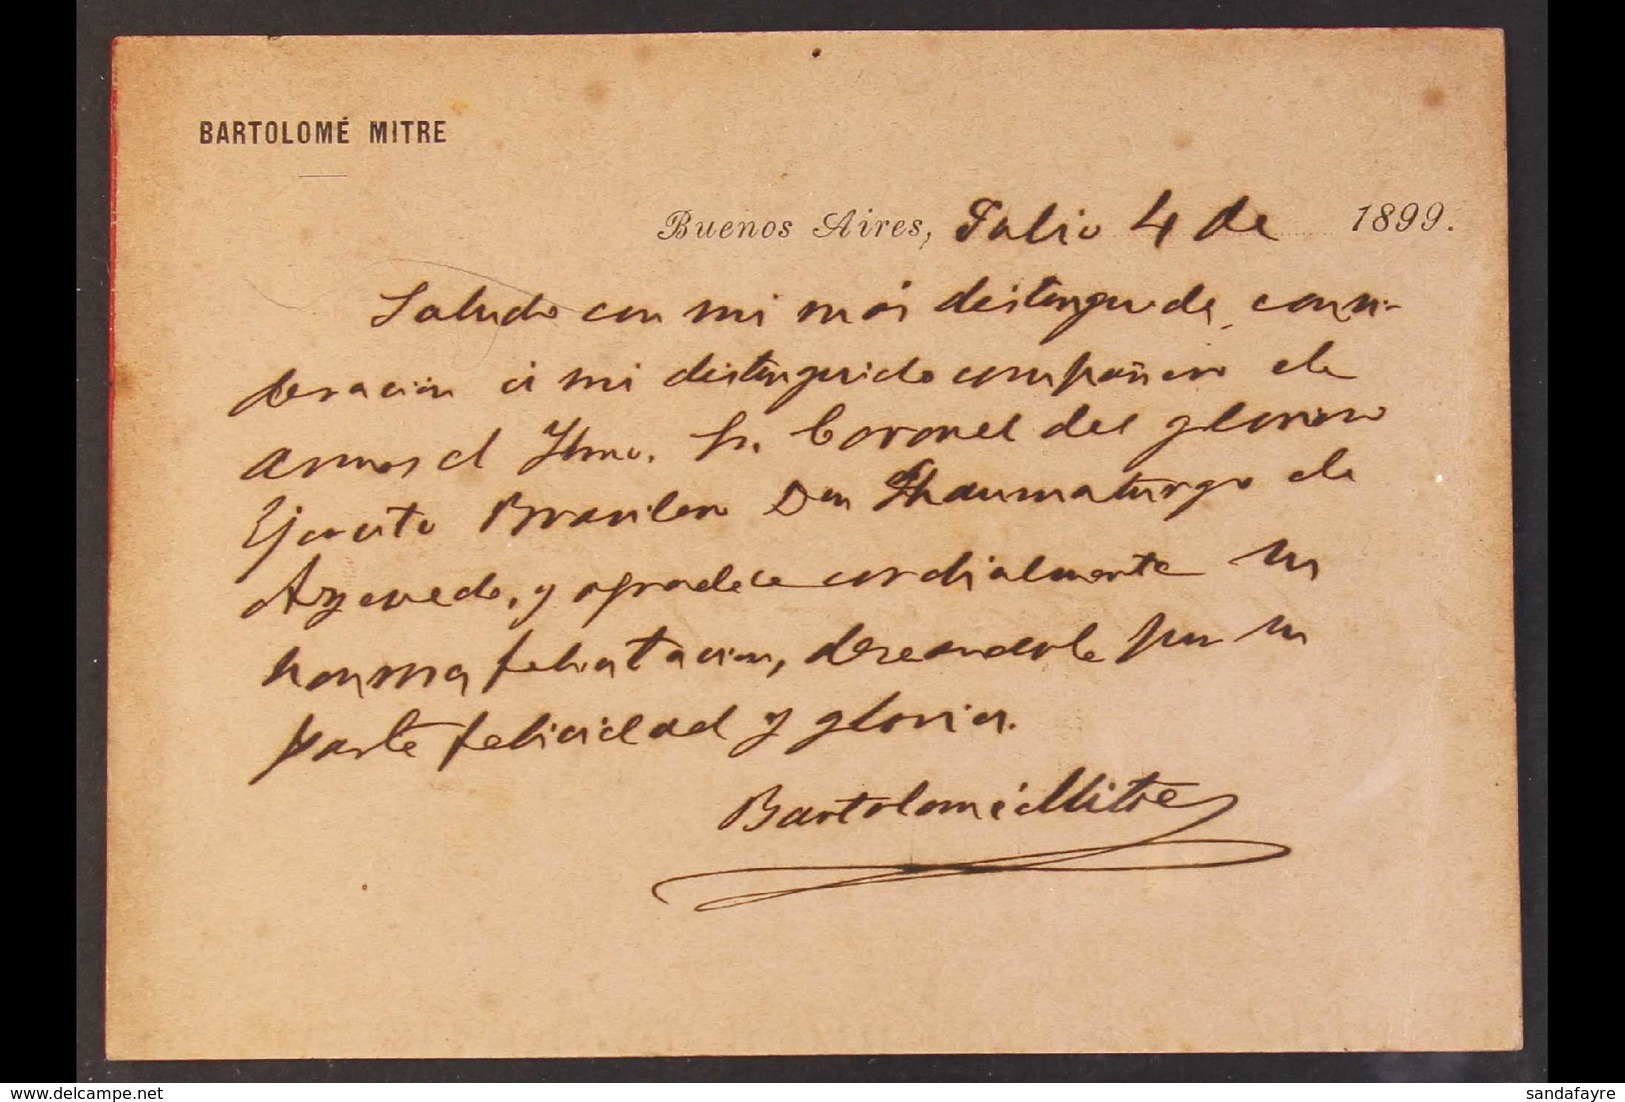 BARTOLOMÉ MITRE
Buenos Aires, Julio 4 de 1899.
Saludo con mi más distinguida consi-
deracion á mi distinguido compañero de
armas el Ilmo. Sr. Coronel del glorioso
Ejercito Brasilero Don Thaumaturgo de
Azevedo, y agradece cordialmente su
honrosa felicitacion, deseandole por su
parte felicidad y gloria.
Bartolomé Mitre
sandafayre